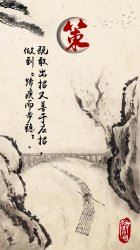 策
既敢出招又善于应招
做到“蹄疾而步稳”。